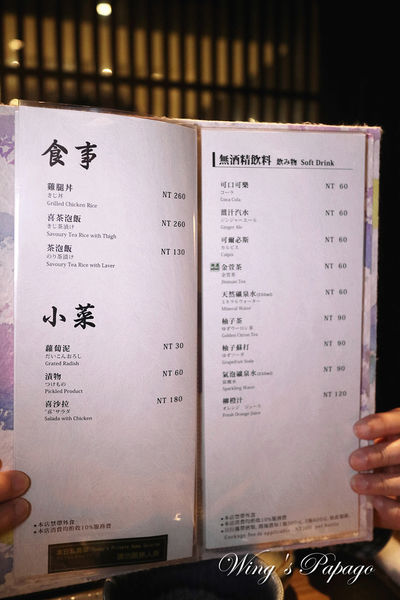 食事
雞腿丼
きじ丼
Grilled Chicken Rice
NT 260
喜茶泡飯
きじ茶漬け
Savoury Tea Rice with Thigh
NT 260
茶泡飯
のり茶漬け
Savoury Tea Rice with Laver
NT 130
小菜
蘿蔔泥
だいこんおろし
Grated Radish
NT 30
漬物
つけもの
Pickled Product
NT 60
喜沙拉
"喜"サラダ
Salada with Chicken
NT 180
•本店禁帶外食
•本店消費均酌收10%服務費
無酒精飲料 飲み物 Soft Drink
可口可樂
コーラ
Coca Cola
NT 60
薑汁汽水
ジンジャーエール
Ginger Ale
NT 60
可爾必斯
カルピス
Calpis
NT 60
金萱茶
金萱茶
NT 60
天然礦泉水
ミネラルウォーター
Mineral Water
NT 60
柚子茶
ゆずウーロン茶
Golden Citron Tea
NT 90
柚子蘇打
ゆずソーダ
Grapefruit Soda
NT 90
氣泡礦泉水
炭酸水
Sparkling Water
NT 90
柳橙汁
オレンジ ジュース
Fresh Orange Juice
NT 120
•本店禁帶外食
•本店消費均酌收10%服務費
Wing's Papago